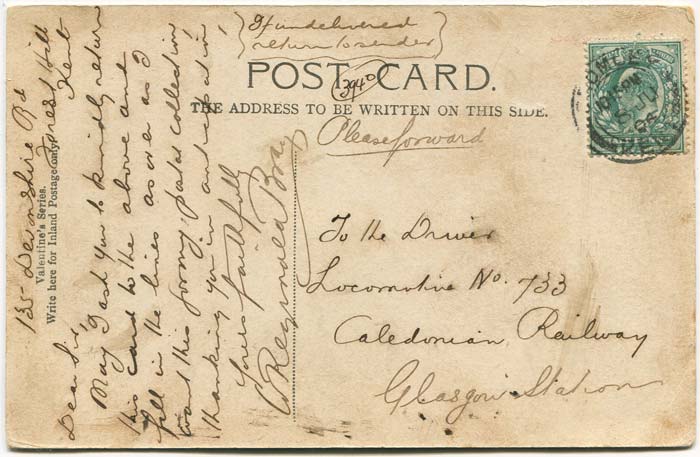 If undelivered
return to sender
POST CARD.
(3940)
THE ADDRESS TO BE WRITTEN ON THIS SIDE.
Please forward
Valentine's Series.
Write here for Inland Postage only.
135 Devonshire Rd
Forest Hill
Kent
Dear Sir,
May I ask you to kindly return
this card to the above and
fill in the lines as over as I
want this for my postal collection,
thanking you in anticipation,
Yours faithfully
W Reginald Bray
To the Driver
Locomotive No. 733
Caledonian Railway
Glasgow Station